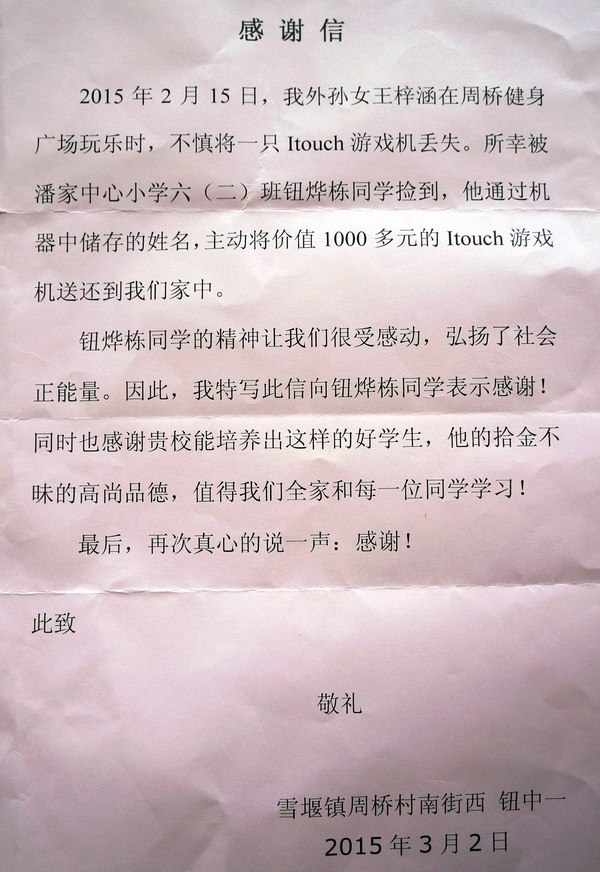 感谢信
2015 年 2 月 15 日，我外孙女王梓涵在周桥健身
广场玩乐时，不慎将一只 Itouch 游戏机丢失。所幸被
潘家中心小学六（二）班钮烨栋同学捡到，他通过机
器中储存的姓名，主动将价值 1000 多元的 Itouch 游戏
机送还到我们家中。
钮烨栋同学的精神让我们很受感动，弘扬了社会
正能量。因此，我特写此信向钮烨栋同学表示感谢！
同时也感谢贵校能培养出这样的好学生，他的拾金不
昧的高尚品德，值得我们全家和每一位同学学习！
最后，再次真心的说一声：感谢！
此致
敬礼
雪堰镇周桥村南街西 钮中一
2015 年 3 月 2 日